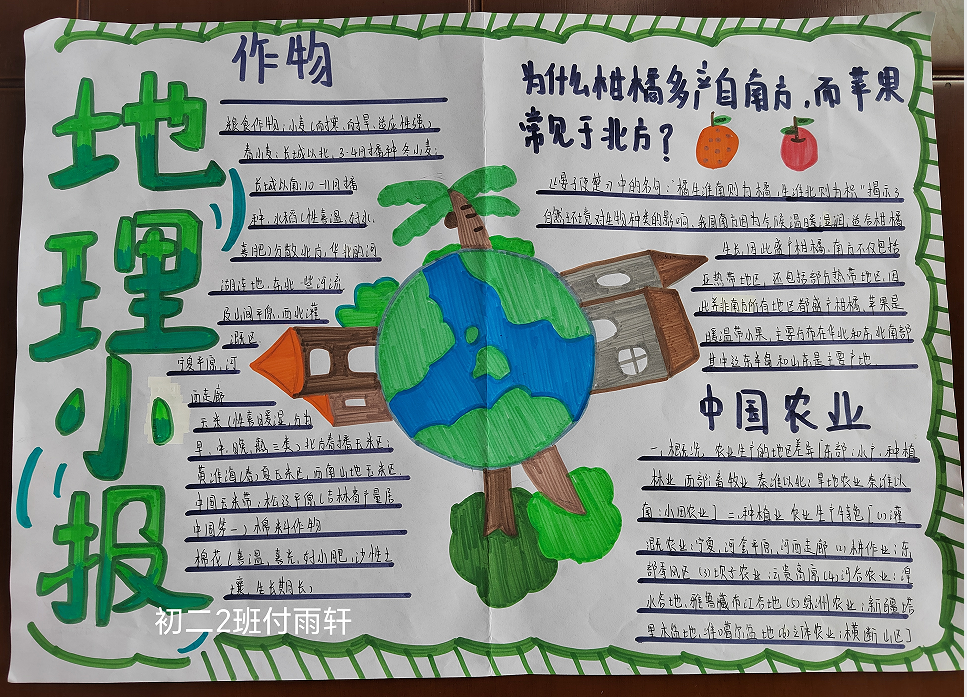 地理小报
作物
粮食作物:小麦(耐寒、耐旱、适应性强)
春小麦:长城以北,3-4月播种 冬小麦:
长城以南:10-11月播
种、水稻(性喜温、好水、
喜肥)分散北方,华北的河
湖洼地,东北一些河流
及山间平原,西北灌
溉区
宁夏平原,河
西走廊
玉米(性喜日暖湿,分为
早、中、晚、熟三类)北方春播玉米区;
黄淮海(春)夏玉米区,西南山地玉米区
中国玉米带:松辽平原(吉林省产量居
中国第一)棉料作物
棉花(喜温、喜光、好小肥,沙性土
壤,生长期长)
为什么柑橘多产自南方,而苹果
常见于北方?
《晏子使楚》中的名句:“橘生淮南则为橘,生淮北则为枳”揭示了
自然环境对生物种类的影响。我国南方因为气候温暖、湿润,适合柑橘
生长,因此盛产柑橘。南方不仅包括
亚热带地区,还包括部分热带地区,因
此并非南方所有地区都盛产柑橘。苹果是
暖温带水果,主要分布在华北和东北南部
其中辽东半岛和山东是主要产地
中国农业
一、概况、农业生产的地区差异[东部:水产、种植
林业 西部:畜牧业 秦淮以北:旱地农业 秦淮以
南:水田农业] 二、种植业 农业生产[特色](1)灌
溉农业:宁夏、河套平原,河西走廊(2)耕作业:东
部季风区(3)坝子农业:云贵高原(4)河谷农业:湟
水谷地,雅鲁藏布江谷地(5)绿洲农业:新疆塔
里木盆地,准噶尔盆地(6)立体农业:横断山区]
初二2班付雨轩